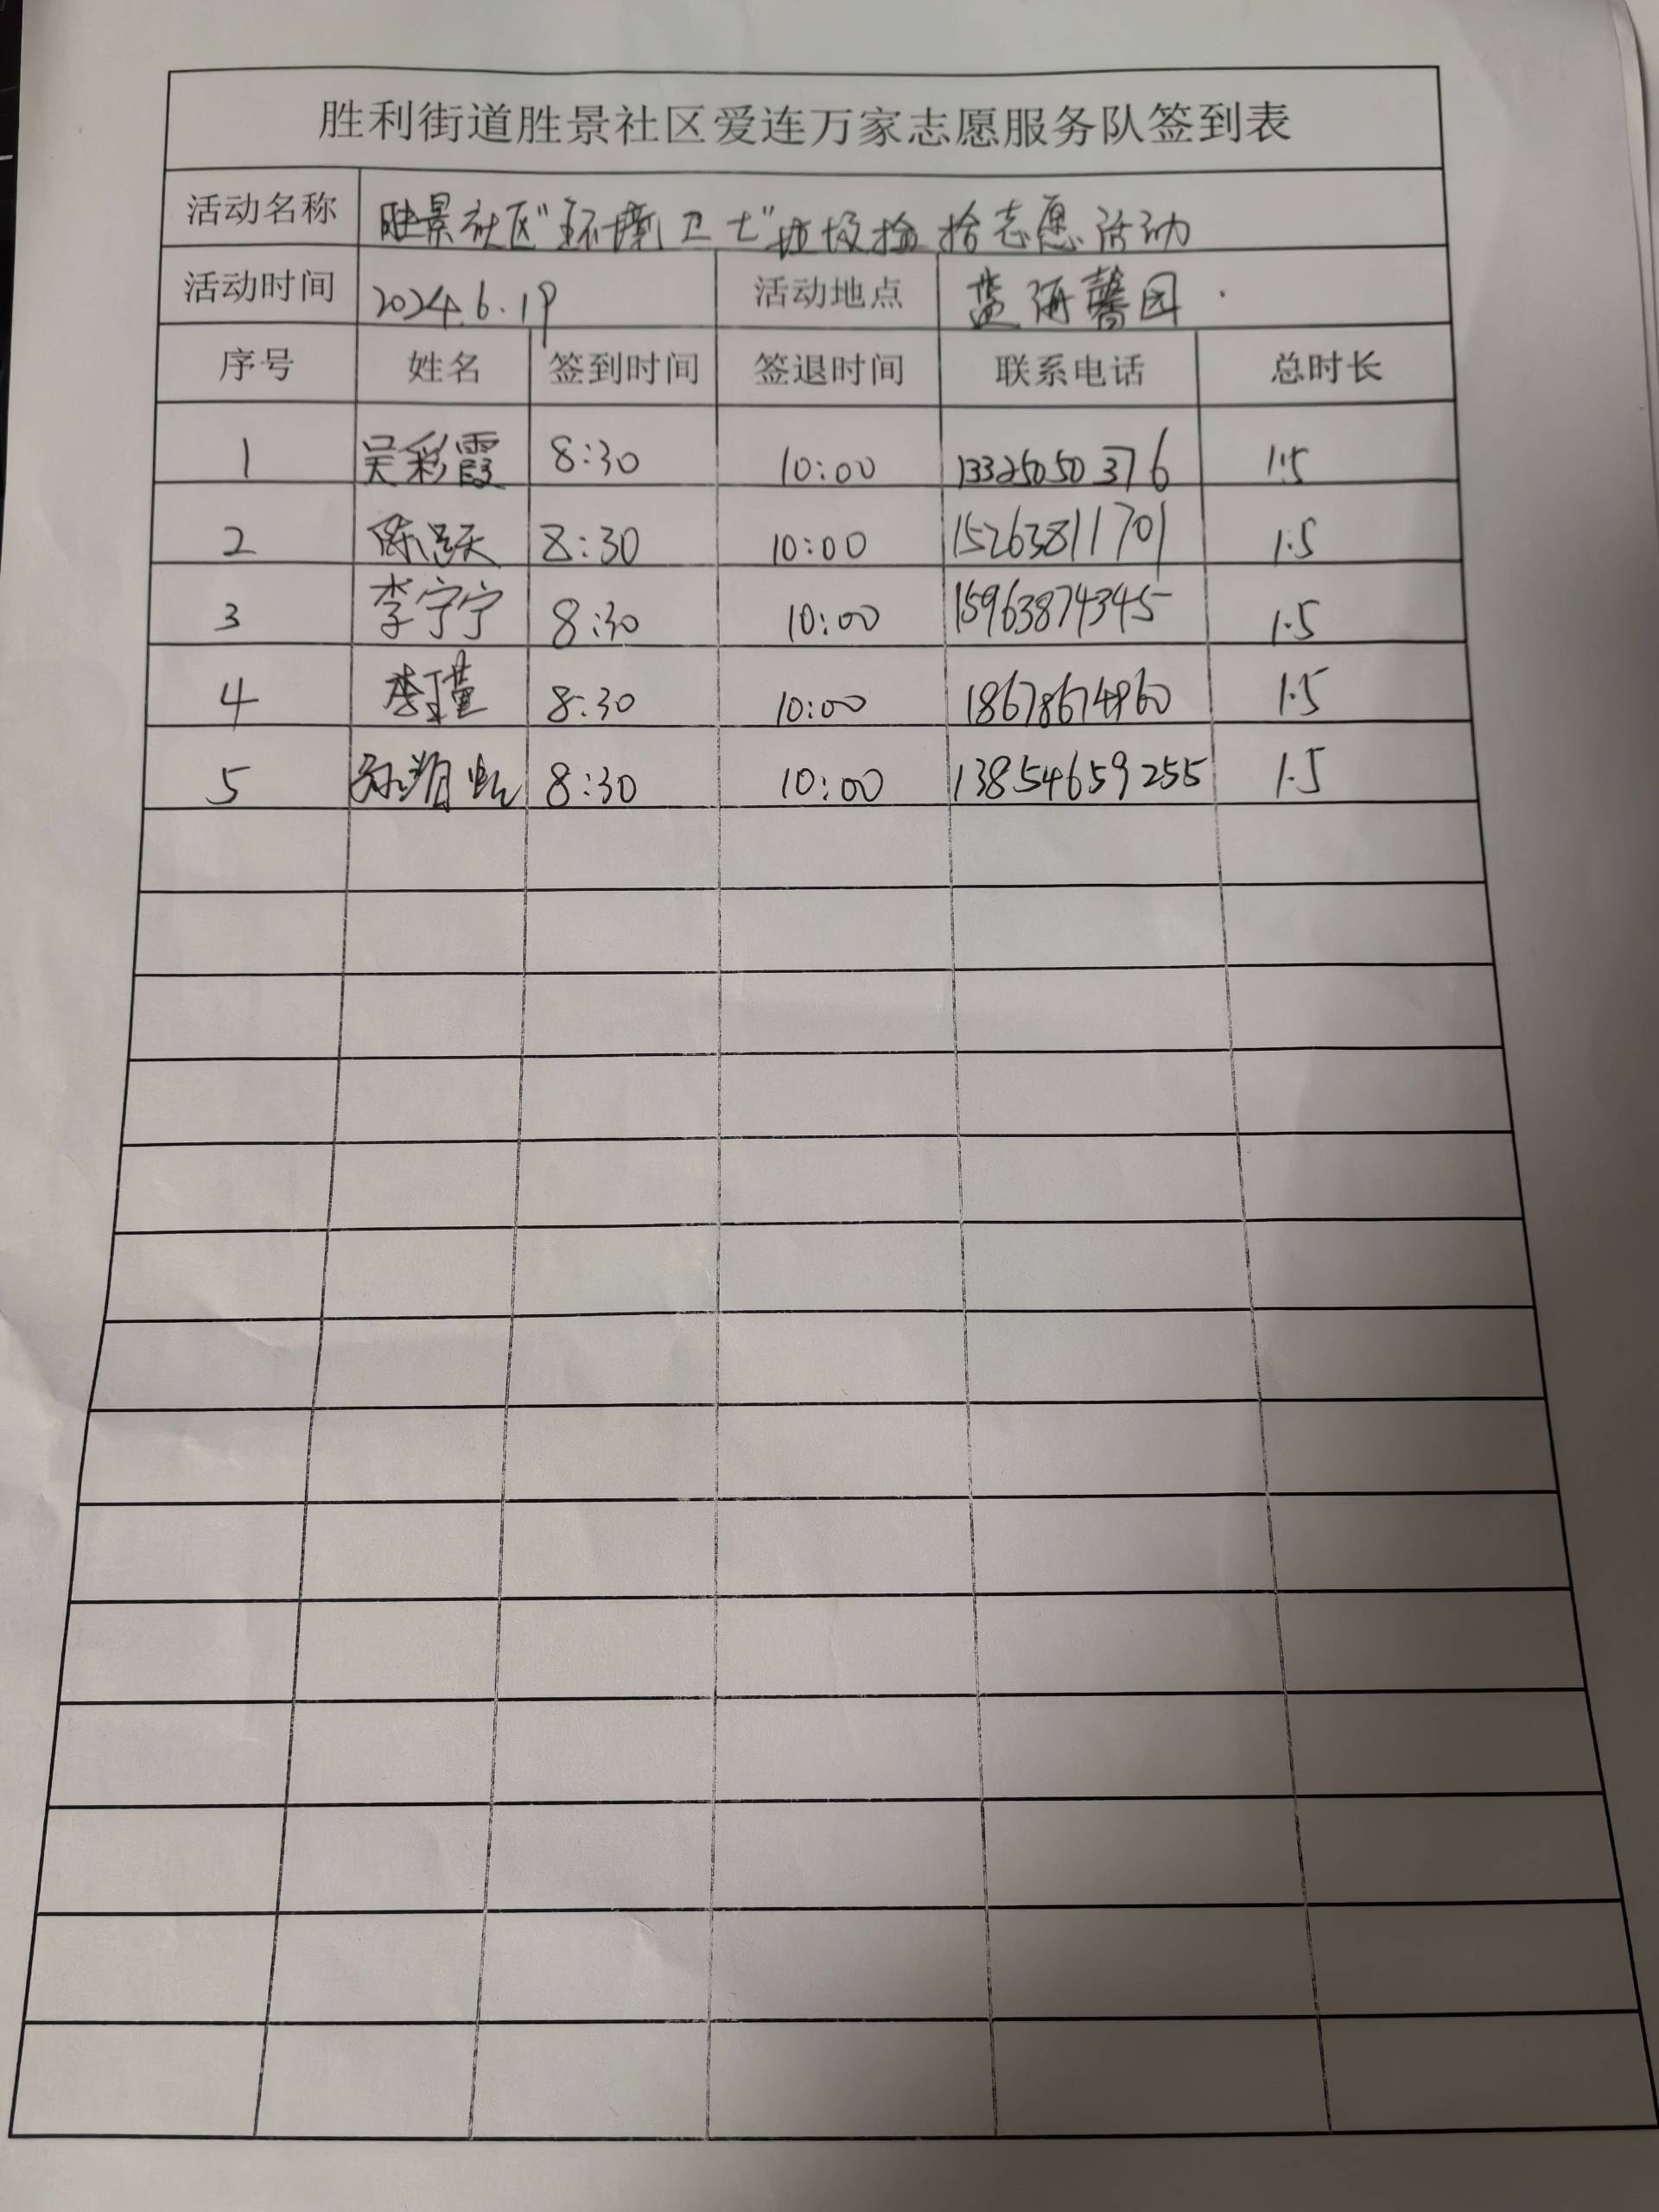 胜利街道胜景社区爱连万家志愿服务队签到表
活动名称 胜景社区"环境卫士"垃圾捡拾志愿活动
活动时间 2024.6.19 活动地点 蓝海馨园
序号 姓名 签到时间 签退时间 联系电话 总时长
1 吴彩霞 8:30 10:00 13325050376 1.5
2 8:30 10:00 15263811701 1.5
3 李宁宁 8:30 10:00 15963874345 1.5
4 李瑾 8:30 10:00 18678674860 1.5
5 8:30 10:00 13854659255 1.5